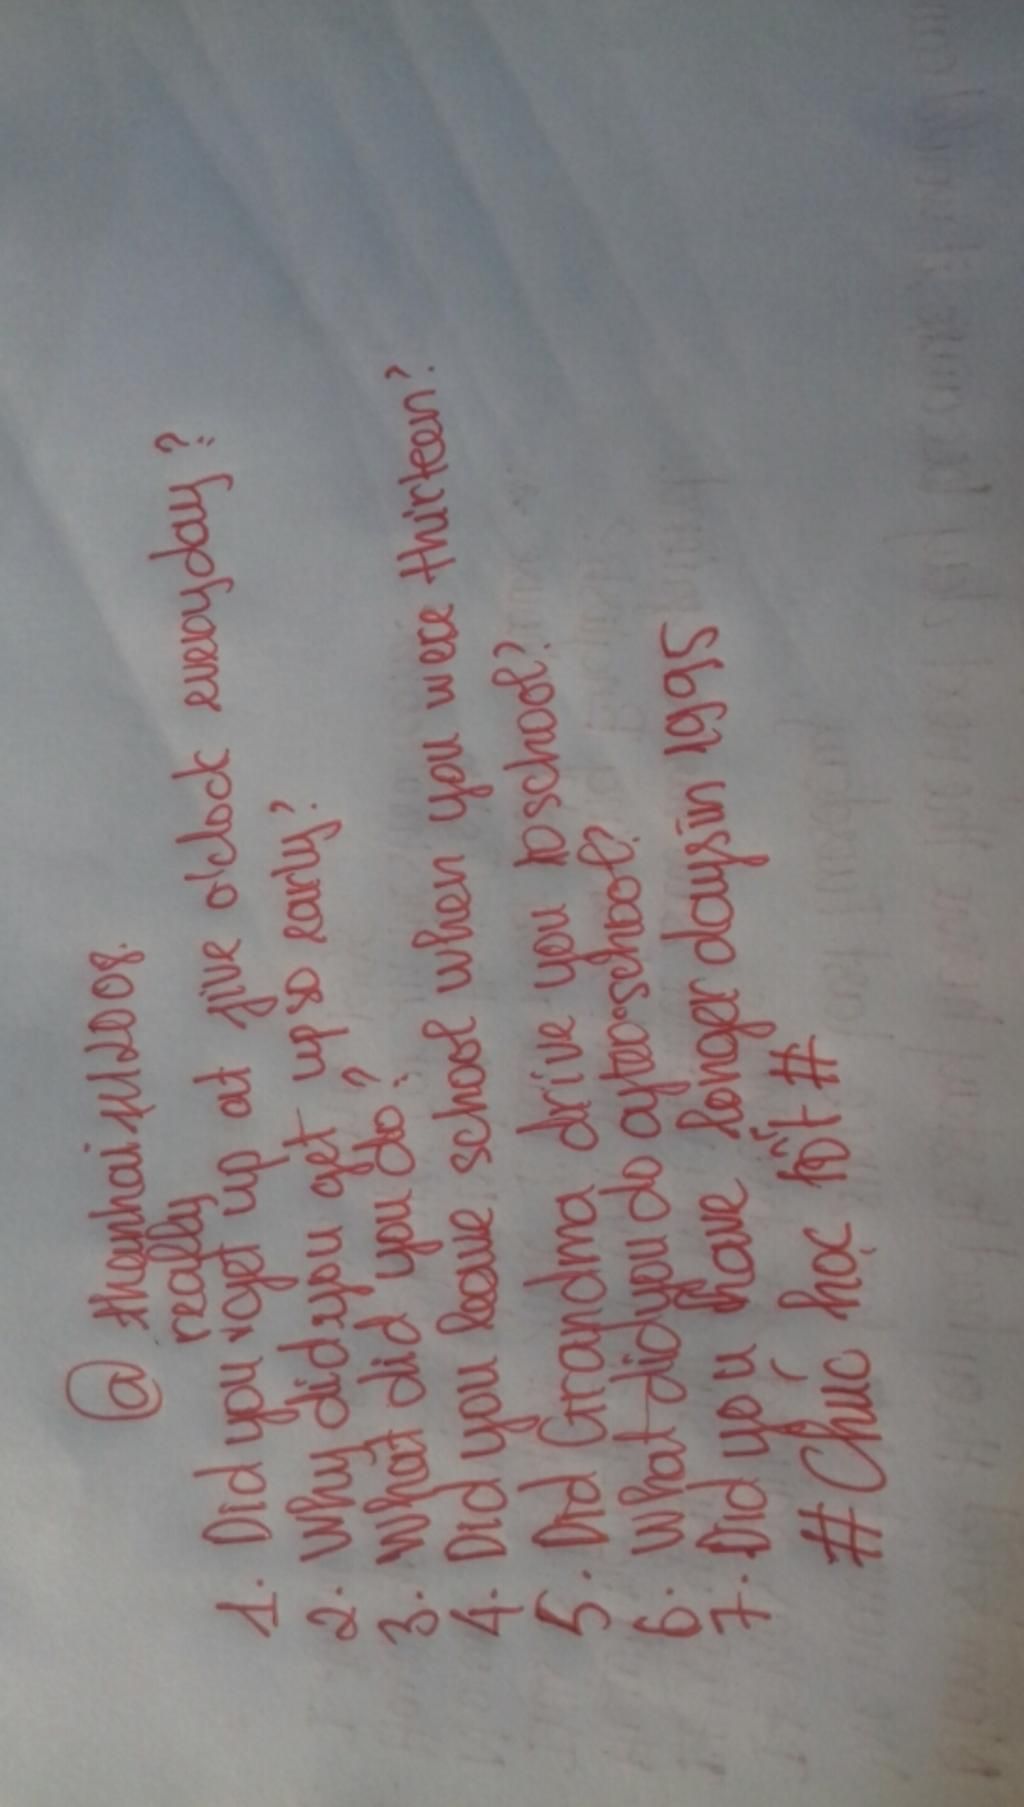 @ thanhain112008.
really
1. Did you get up at five o'clock everyday?
2. Why did you get up so early?
3. What did you do?
4. Did you leave school when you were thirteen?
5. Did Grandma drive you to school?
6. What did you do after school?
7. Did you have longer days in 1995
# Chúc học tốt #